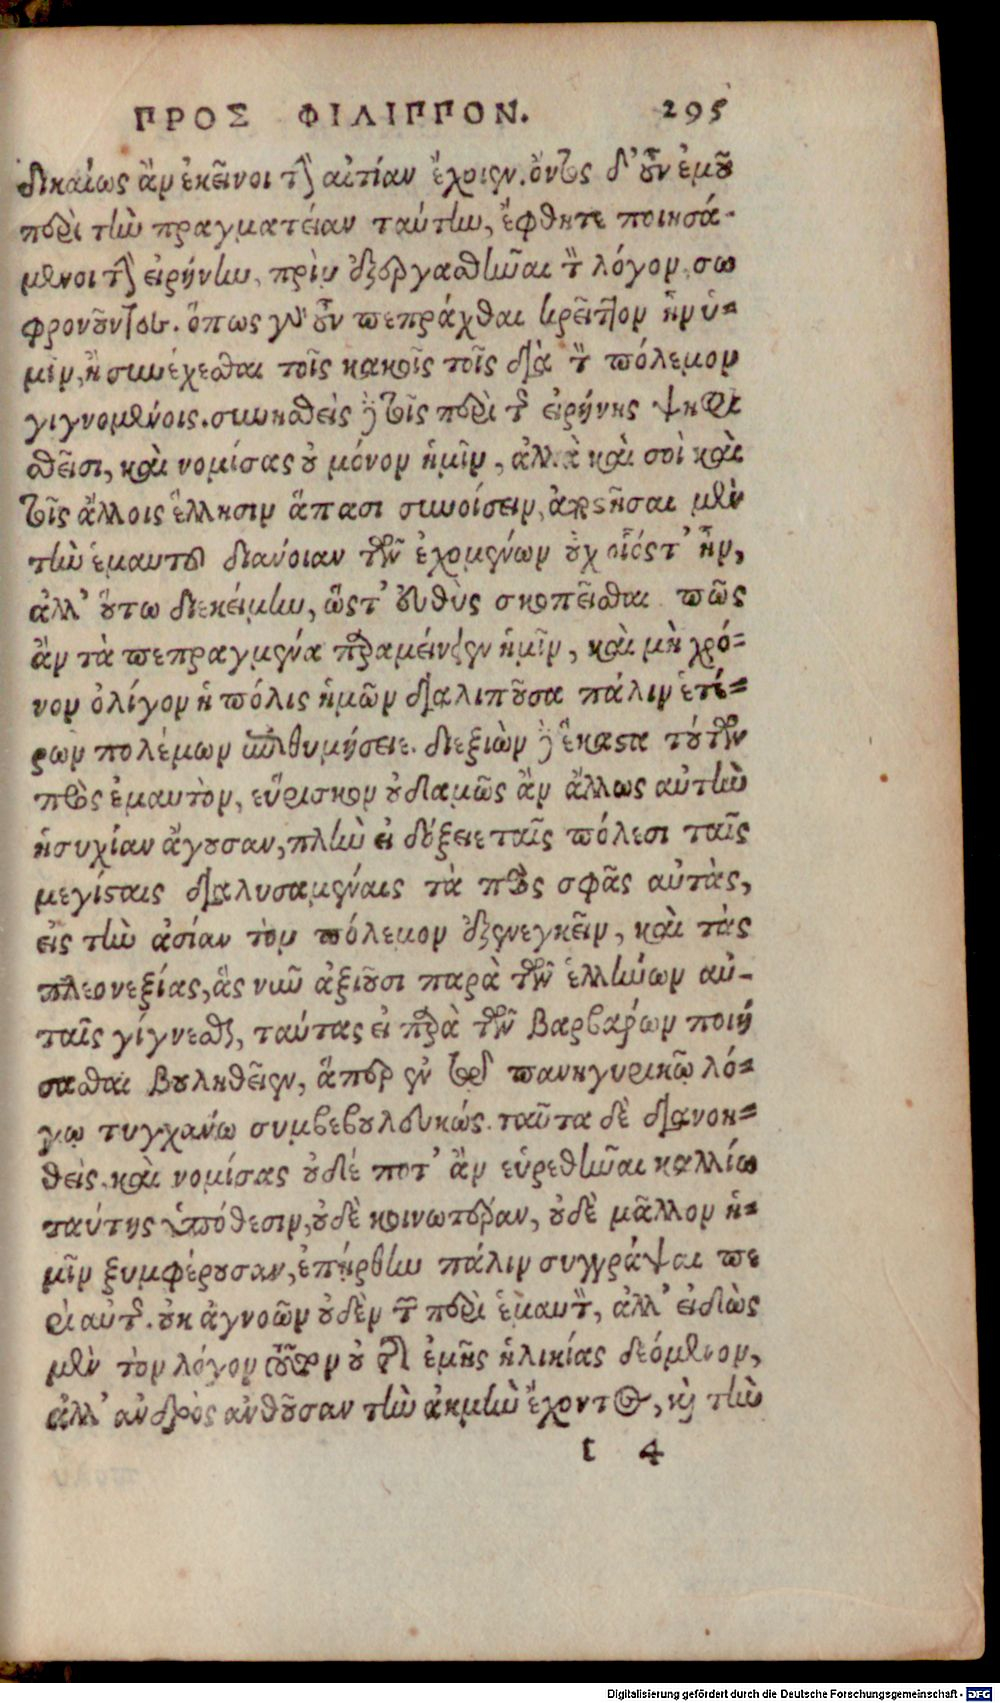 ΠΡΟΣ ΦΙΛΙΠΠΟΝ. 295
δικαίως ἂν ἐκεῖνοι τὴν αἰτίαν ἔχοιεν. ὄντος δ' οὖν ἐμοῦ
περὶ τὴν πραγματείαν ταύτην, ἔφθητε ποιησά-
μενοι τὴν εἰρήνην, πρὶν ἐξεργασθῆναι τὸν λόγον, σω
φρονοῦντες. ὅπως γὰρ οὖν πεπρᾶχθαι κρεῖττον ἦν ὑ-
μῖν, ἢ συνέχεσθαι τοῖς κακοῖς τοῖς διὰ τὸν πόλεμον
γιγνομένοις. συνησθεὶς δὲ τοῖς περὶ τῆς εἰρήνης ψηφι
σθεῖσι, καὶ νομίσας οὐ μόνον ἡμῖν, ἀλλὰ καὶ σοὶ καὶ
τοῖς ἄλλοις ἕλλησιν ἅπασι συνοίσειν, ἀποστῆσαι μὲν
τὴν ἐμαυτοῦ διάνοιαν τῶν ἐχομένων οὐχ οἷός τ' ἦν,
ἀλλ' οὕτω διεκείμην, ὥστ' εὐθὺς σκοπεῖσθαι πῶς
ἂν τὰ πεπραγμένα παραμείνειεν ἡμῖν, καὶ μὴ χρό-
νον ὀλίγον ἡ πόλις ἡμῶν διαλιποῦσα πάλιν ἑτέ-
ρων πολέμων ἐπιθυμήσειε. διεξιὼν δὲ ἕκαστα τούτων
πρὸς ἐμαυτὸν, εὕρισκον οὐδαμῶς ἂν ἄλλως αὐτὴν
ἡσυχίαν ἄγουσαν, πλὴν εἰ δόξειε ταῖς πόλεσι ταῖς
μεγίσταις διαλυσαμέναις τὰ πρὸς σφᾶς αὐτὰς,
εἰς τὴν ἀσίαν τὸν πόλεμον ἐξενεγκεῖν, καὶ τὰς
πλεονεξίας, ἃς νῦν ἀξιοῦσι παρὰ τῶν ἑλλήνων αὐ-
ταῖς γίγνεσθαι, ταύτας εἰ παρὰ τῶν βαρβάρων ποιή
σασθαι βουληθεῖεν, ἅπερ ἐν τῷ πανηγυρικῷ λό-
γῳ τυγχάνω συμβεβουλευκώς. ταῦτα δὲ διανοη-
θεὶς, καὶ νομίσας οὐδέ ποτ' ἂν εὑρεθῆναι καλλίω
ταύτης ὑπόθεσιν, οὐδὲ κοινωτέραν, οὐδὲ μᾶλλον ἡ-
μῖν ξυμφέρουσαν, ἐπήρθην πάλιν συγγράψαι πε
ρὶ αὐτῆς. οὐκ ἀγνοῶν οὐδὲν τῶν περὶ ἐμαυτὸν, ἀλλ' εἰδὼς
μὲν τὸν λόγον τοῦτον οὐ τῆς ἐμῆς ἡλικίας δεόμενον,
ἀλλ' ἀνδρὸς ἀνθοῦσαν τὴν ἀκμὴν ἔχοντος, καὶ τὴν
t 4
Digitalisierung gefördert durch die Deutsche Forschungsgemeinschaft - DFG